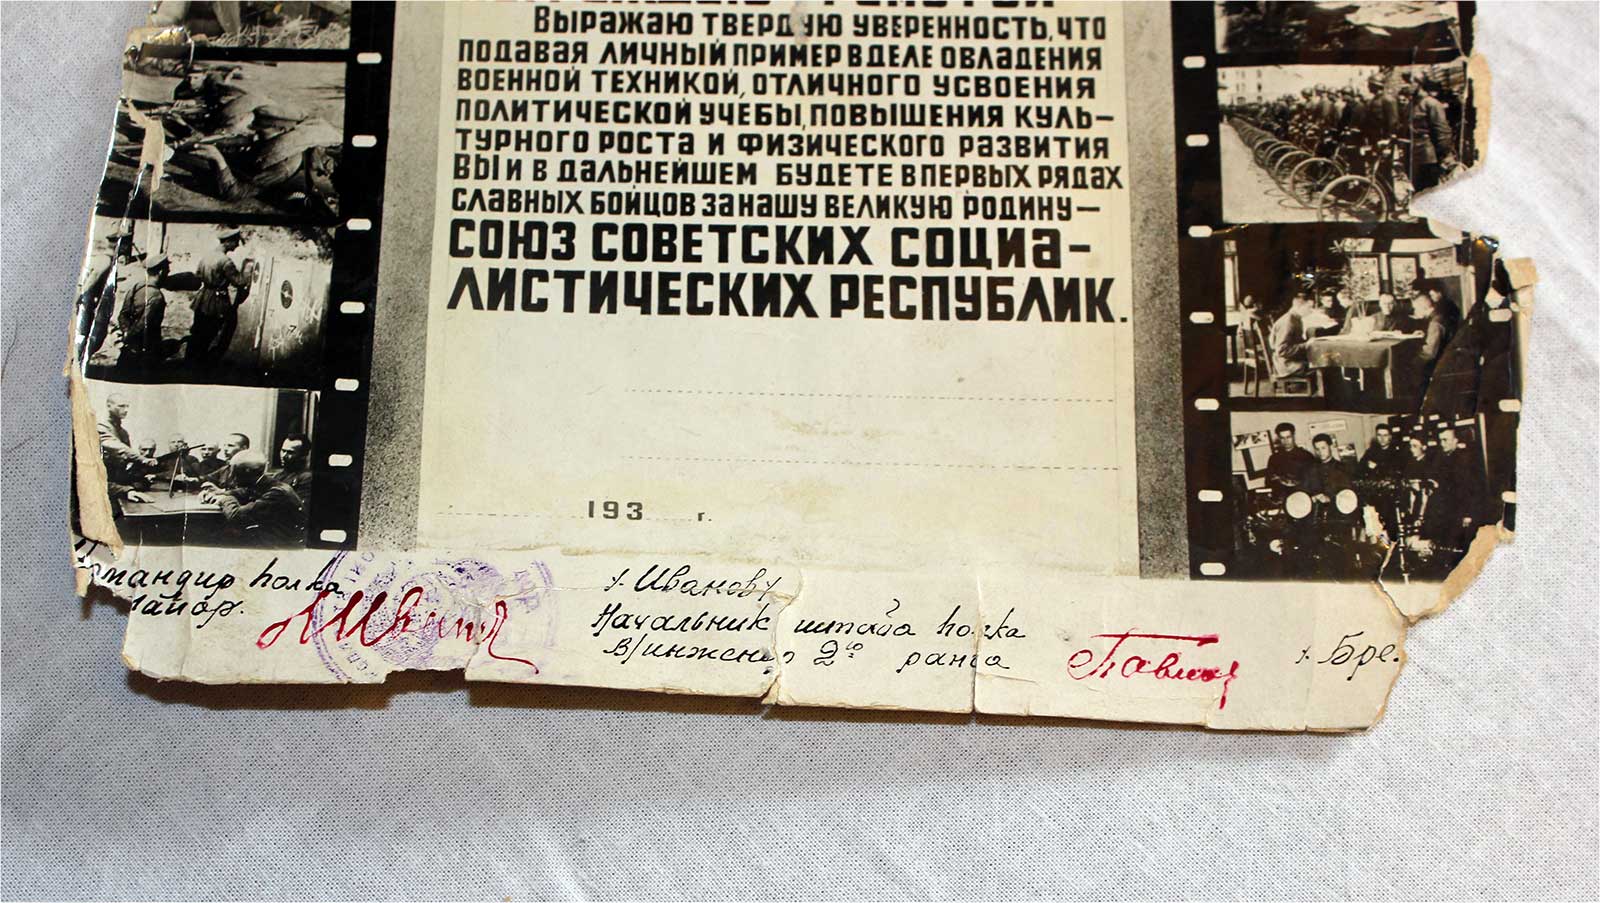 Выражаю твердую уверенность, что
подавая личный пример в деле овладения
военной техникой, отличного усвоения
политической учебы, повышения куль-
турного роста и физического развития
Вы и в дальнейшем будете в первых рядах
славных бойцов за нашу великую родину-
СОЮЗ СОВЕТСКИХ СОЦИА-
ЛИСТИЧЕСКИХ РЕСПУБЛИК.
193 г.
мандир полка
майор.
/Иванов/
Начальник штаба полка
В/инженер 2го ранга
/Бре.